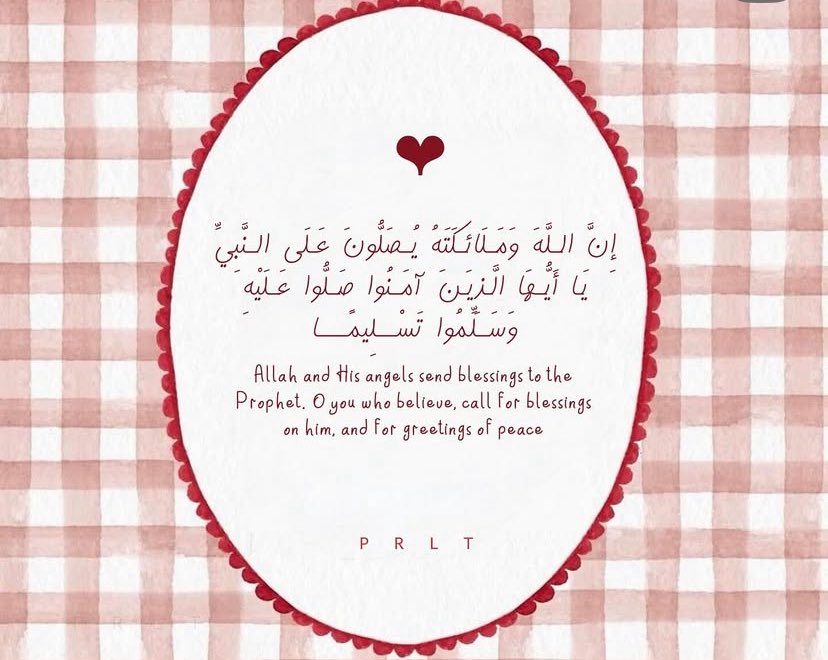 إِنَّ اللَّهَ وَمَلَائِكَتَهُ يُصَلُّونَ عَلَى النَّبِيِّ
يَا أَيُّهَا الَّذِينَ آمَنُوا صَلُّوا عَلَيْهِ
وَسَلِّمُوا تَسْلِيمًا
Allah and His angels send blessings to the
Prophet. O you who believe, call for blessings
on him, and for greetings of peace
P R L T